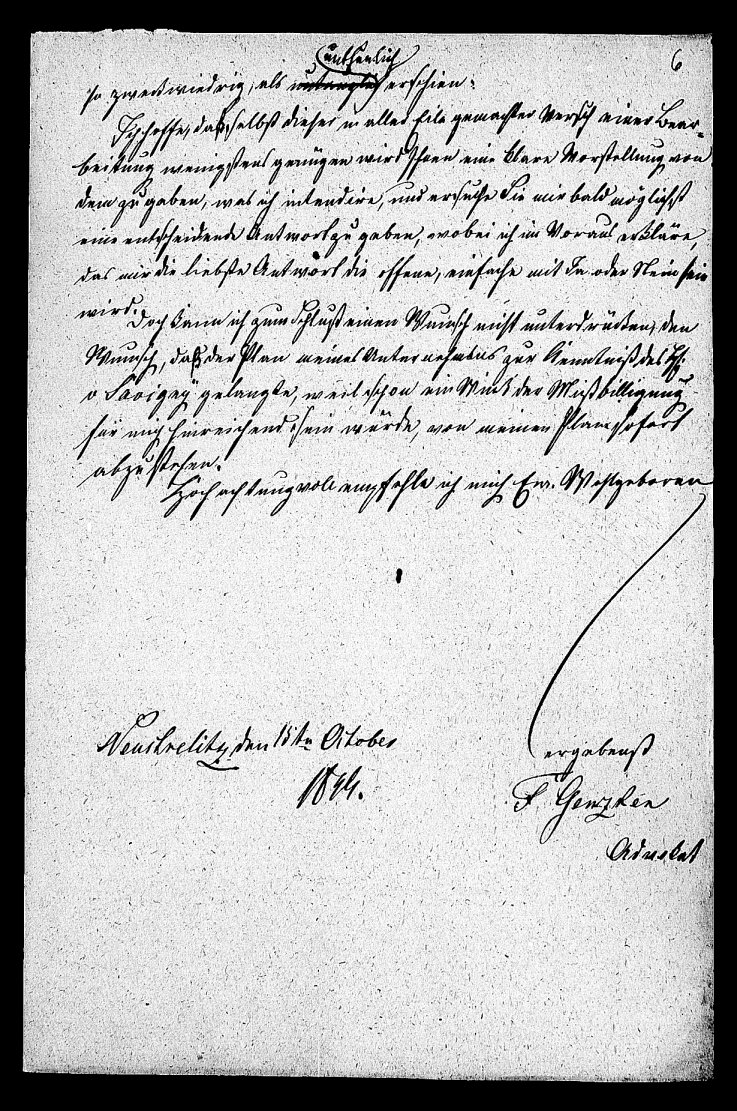 6
unthunlich
so zweckwiedrig, als erschien.
Ich hoffe, daß selbst dieser in aller Eile gemachter Versch einer Bear-
beitung wenigstens genügen wird Ihnen eine klare Vorstellung von
dem zu geben, was ich intendire, und ersuche Sie mir bald möglichst
eine entscheidende Antwort zu geben, wobei ich im Voraus erkläre,
das mir die liebste Antwort die offene, einfache mit Ja oder Nein sein
wird.
Doch kann ich zum Schluß einen Wunsch nicht unterdrücken, den
Wunsch, daß der Plan meines Unternehmens zur Kenntniß des H.
v Savigny gelangte, weil schon ein Wink der Mißbilligung
für mich hinreichend sein würde, von meinen Plane sofort
abzustehen.
Hochachtungvoll empfehle ich mich Ew. Wohlgeboren
Neustrelitz den 15tn October
1844.
ergebenst
F Genzken
Advokat